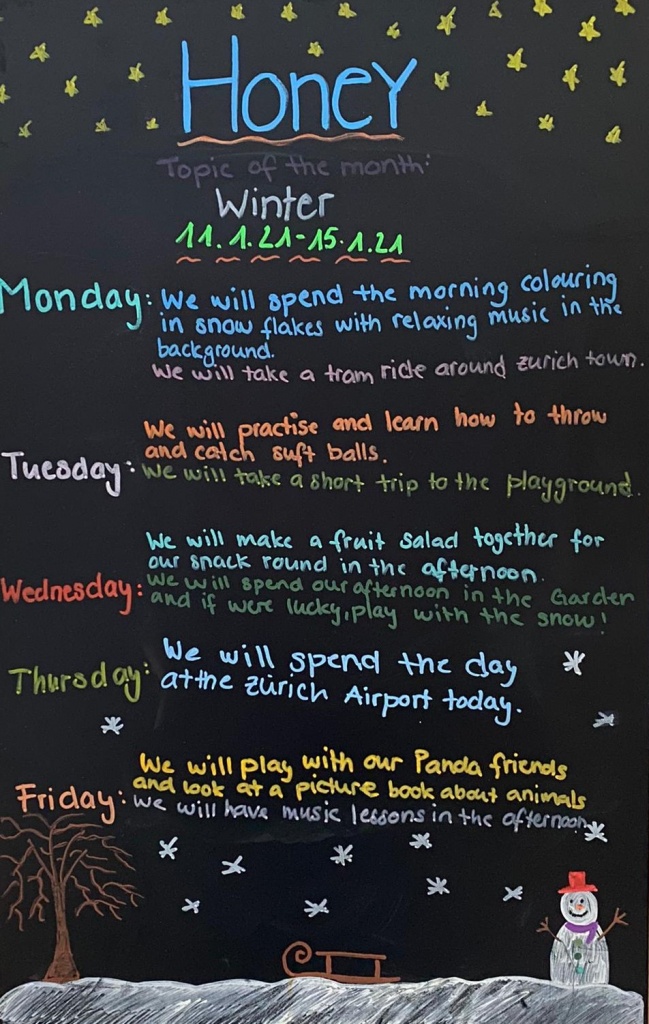 Honey
Topic of the month:
Winter
11.1.21-15.1.21
Monday: We will spend the morning colouring
in snow flakes with relaxing music in the
background.
We will take a tram ride around zurich town.
We will practise and learn how to throw
and catch suft balls.
Tuesday: We will take a short trip to the playground.
We will make a fruit salad together for
our snack round in the afternoon.
Wednesday: We will spend our afternoon in the Garden
and if were lucky, play with the snow!
We will spend the day
Thursday: at the zürich Airport today.
We will play with our Panda friends
and look at a picture book about animals
Friday: we will have music lessons in the afternoon